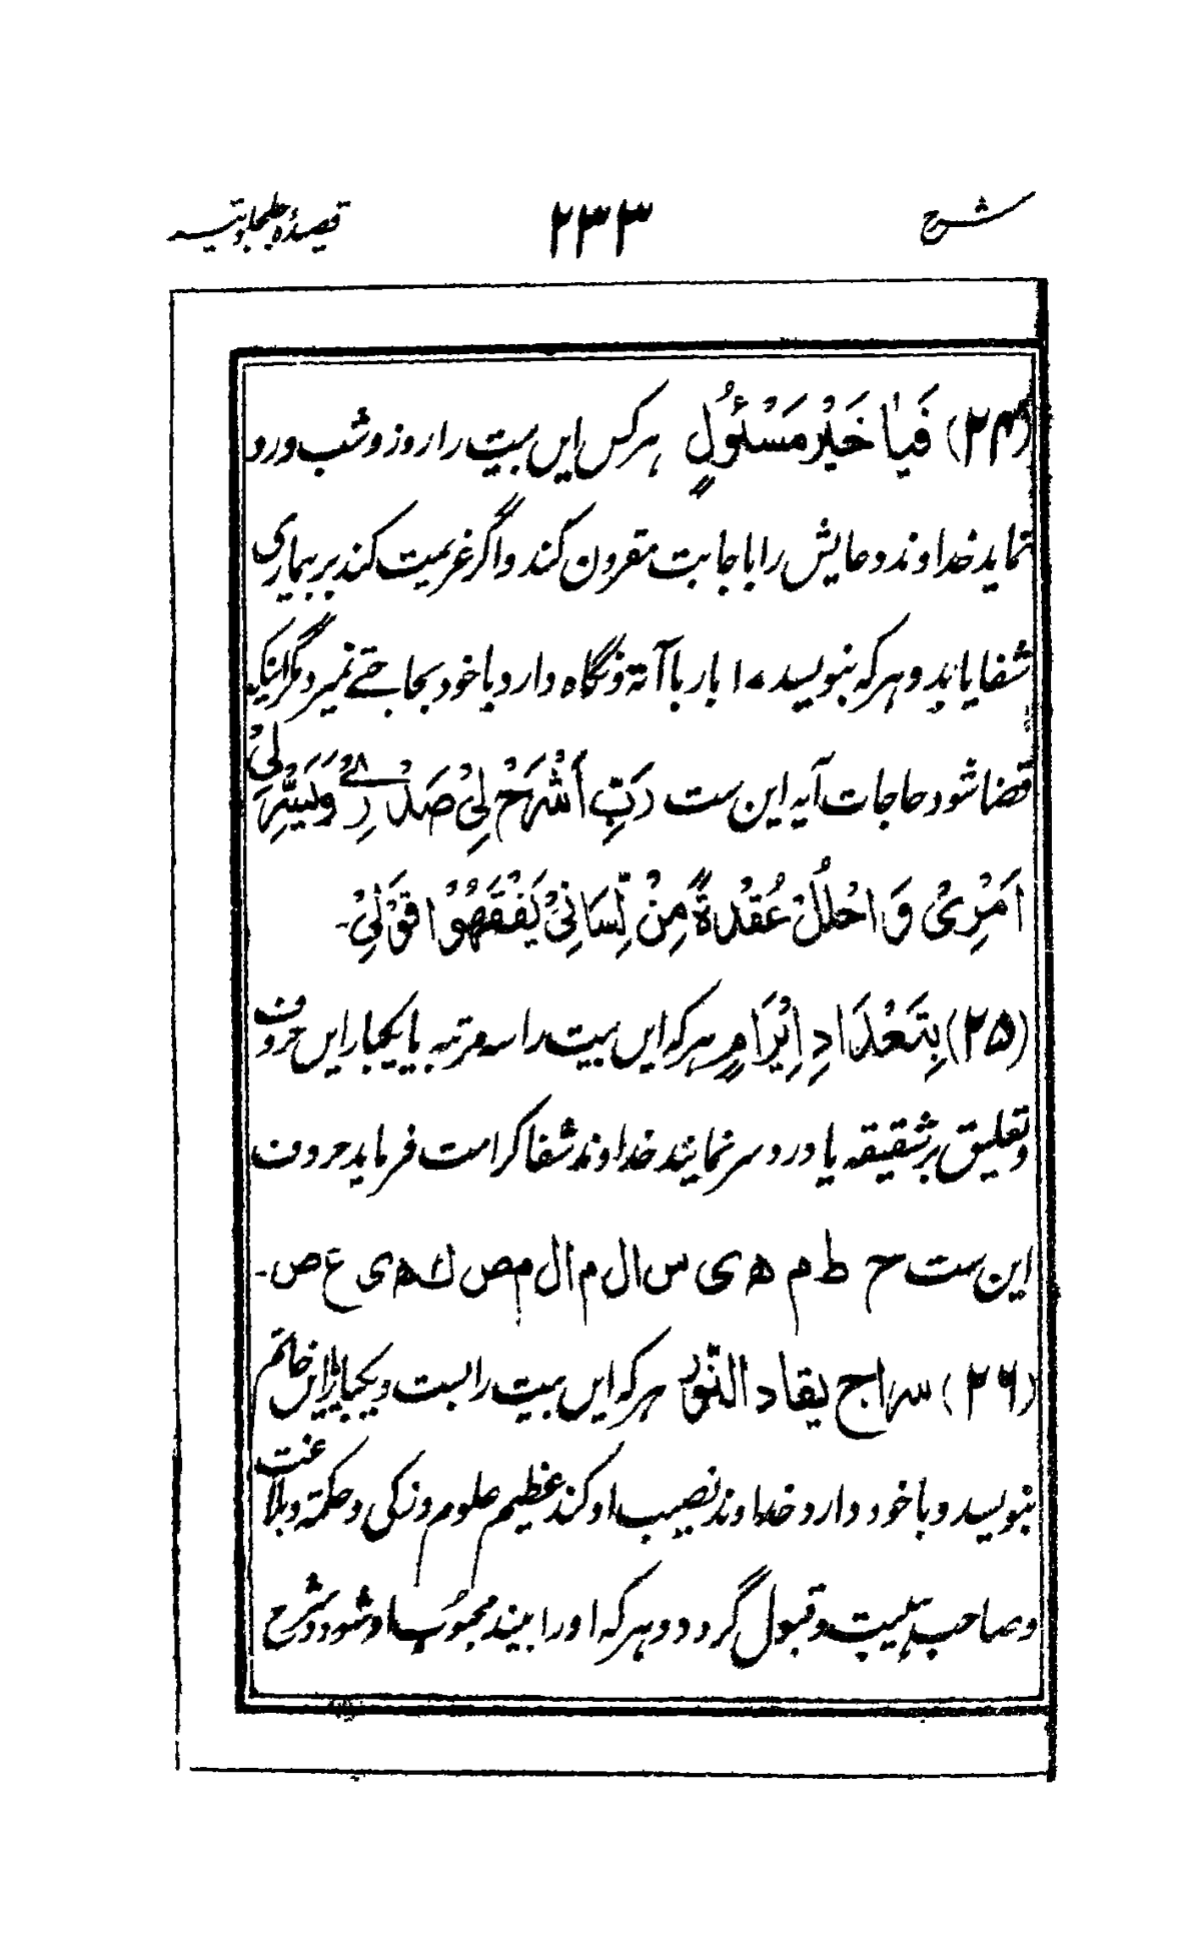 شرح ۲۳۳ قصیدۂ جلجلوتیہ
(۲۴) فَيَا خَيْرَ مَسْئُولٍ ہرکس ایں بیت را روز و شب ورد
نماید خداوند دعایش را باجابت مقرون کند و اگر عزیمت کند بر بیماری
شفا یابد و ہرکہ بنویسد ۱۰ بار با آتہ و نگاہ دارد با خود بحاجتے نمیرد مگر اینکہ
قضا شود حاجات آیہ این ست رَبِّ اشْرَحْ لِيْ صَدْرِيْ وَيَسِّرْ لِيْ
اَمْرِيْ وَاحْلُلْ عُقْدَةً مِنْ لِّسَانِيْ يَفْقَهُوْا قَوْلِيْ۔
(۲۵) بِتَعْدَادِ اِبْرَامٍ ہرکہ ایں بیت را سہ مرتبہ یا یکبار ایں حروف
و تعلیق بر شقیقہ یا درد سر نمایند خداوند شفا کرامت فرماید حروف
این ست ح ط م ہ ی س ا ل م ا ل م ص ك ه ی ع ص۔
(۲۶) سراج یقاد النّور ہرکہ ایں بیت را بست و یکبار ایں خاتم
بنویسد و با خود دارد خداوند نصیب او کند عظیم علوم و زکی و حکمة و بلاغت
و صاحب ہیبت و قبول گردد و ہرکہ او را بیند محبوب او شود و شرح